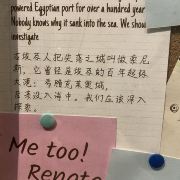 powered Egyptian port for over a hundred year
Nobody knows why it sank into the sea. We show
investigate
古埃及人把失落之城叫做索尼
斯，它曾经是埃及的百年超级
大港：希腊克里奥城，
沉没入海中。我们应该深入
探索。
Me too!
Renato